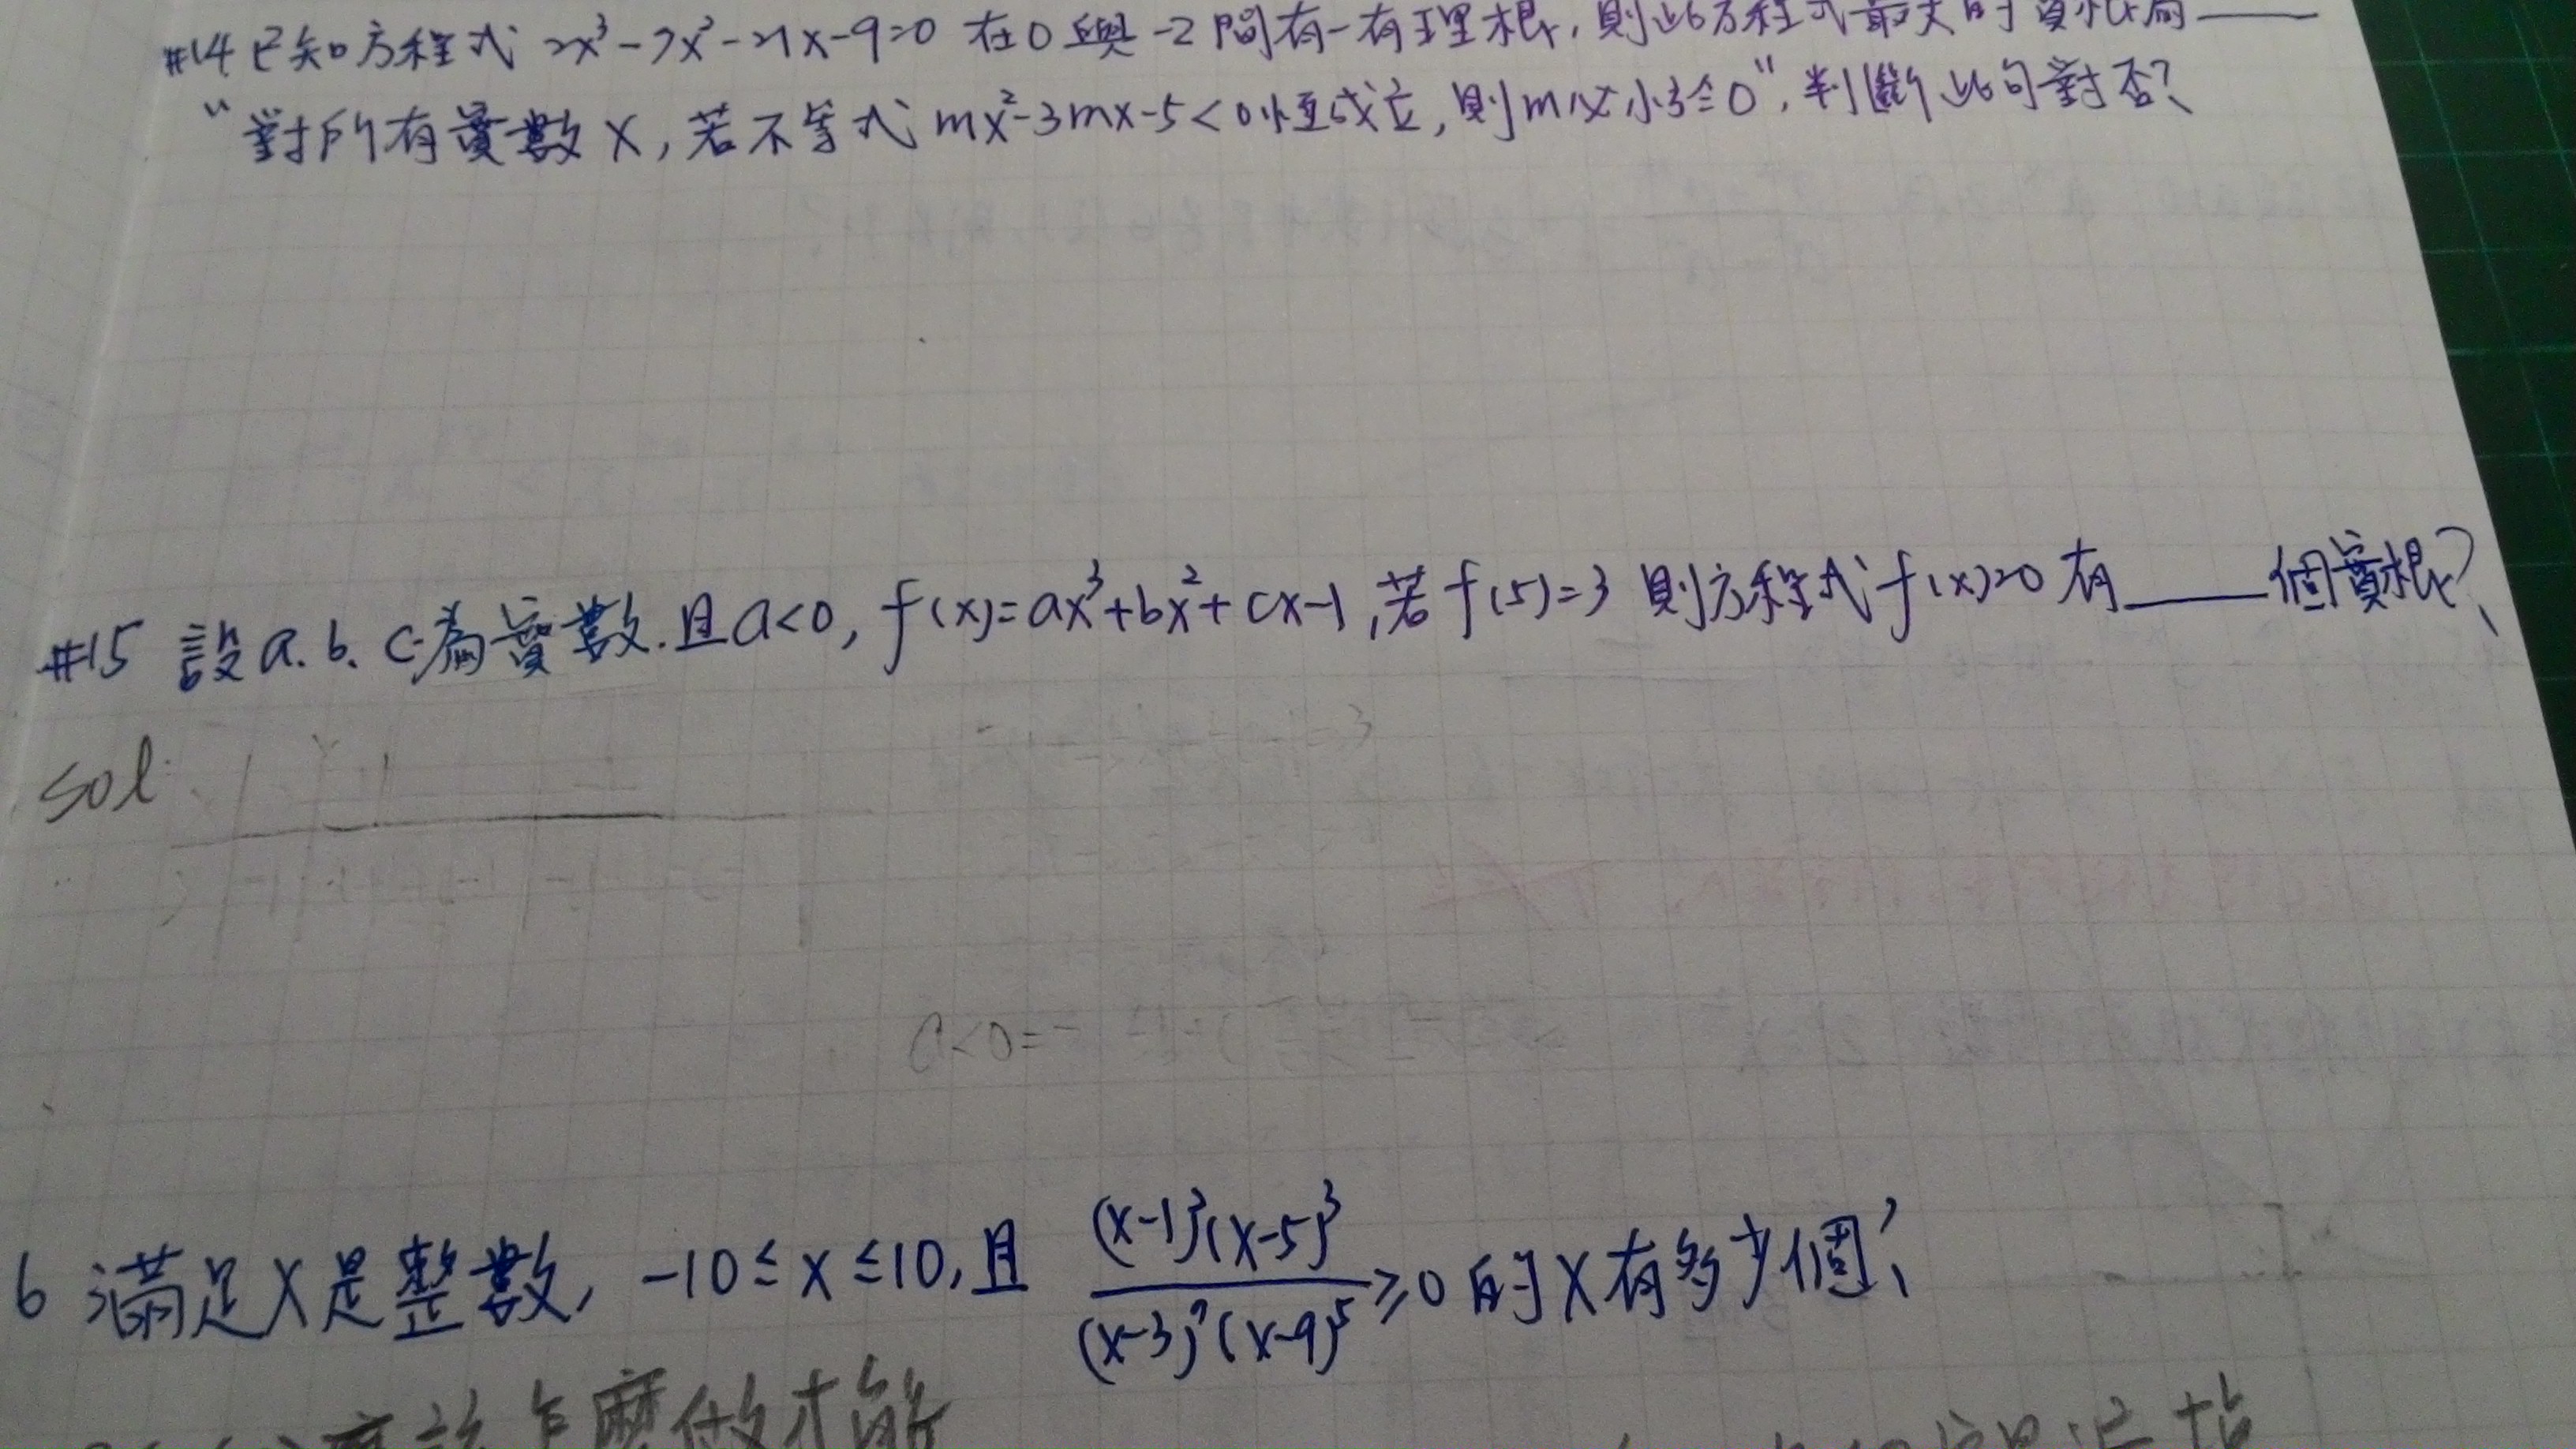 #14 已知方程式 2x³-7x²-21x-9=0 在0與-2間有一有理根,則此方程式最大的實根為____
"對所有實數X,若不等式mx²-3mx-5<0恆成立,則m必小於0",判斷此句對否?
#15 設a.b.c為實數.且a<0, f(x)=ax³+bx²+cx-1,若f(5)=3則方程式f(x)=0有____個實根?
sol:
a<0=
6 滿足X是整數, -10≤x≤10,且 (x-1)²(x-5)³/(x-3)²(x-9)⁵≥0的X有多少個?
怎麼做才能